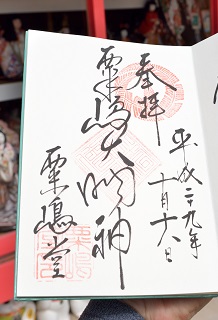 奉拝
平成二十九年
十月十六日
粟嶋大明神
粟嶋堂